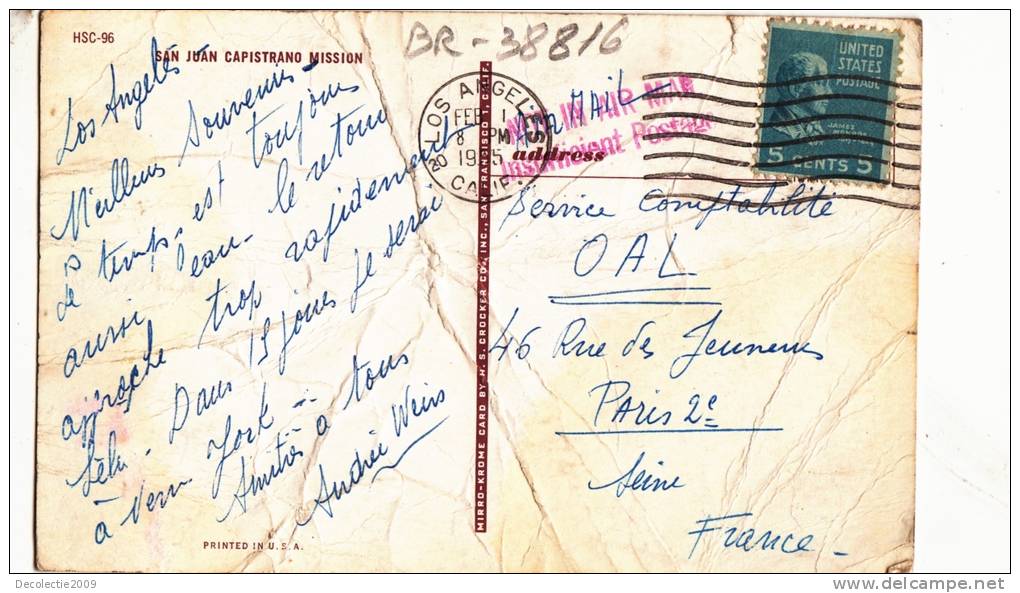 HSC-96
SAN JUAN CAPISTRANO MISSION
BR-38816
Los Angeles
Meilleurs Souvenirs -
le temps est toujours
aussi beau - le retour
approche trop rapidement
Dans 15 jours je serai
à New York
Amitiés à tous
Andrée Weiss
PRINTED IN U.S.A.
MIRRO-KROME CARD BY H.S. CROCKER CO., INC., SAN FRANCISCO 1, CALIF.
LOS ANGELES
FEB 1
8 PM
1955
20 CALIF.
AIR MAIL
NOT IN AIR MAIL
Insufficient Postage
address
UNITED
STATES
POSTAGE
JAMES
MONROE
5 CENTS 5
Service Comptabilité
OAL
46 Rue des Jeuneurs
PARIS 2e
Seine
France -
Decolectie2009
delcampe.net